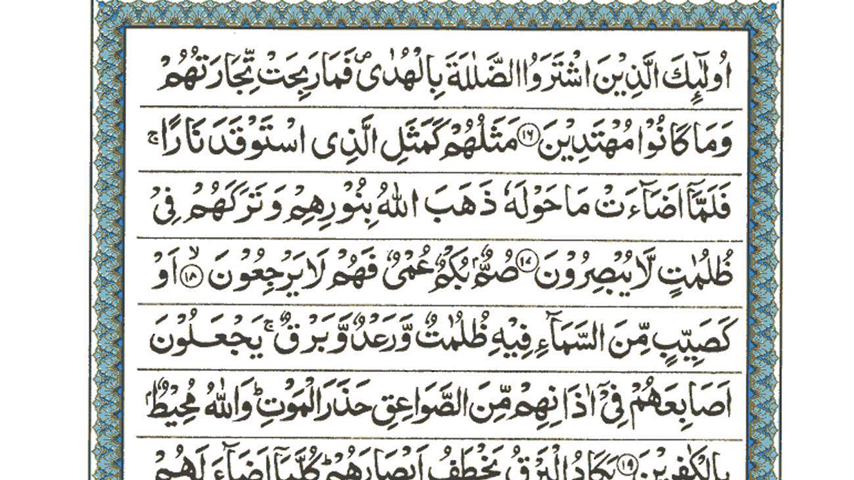 اُولٰٓئِكَ الَّذِيْنَ اشْتَرَوُا الضَّلٰلَةَ بِالْهُدٰى ۪ فَمَا رَبِحَتْ تِّجَارَتُهُمْ
وَمَا كَانُوْا مُهْتَدِيْنَ ﴿۱۶﴾ مَثَلُهُمْ كَمَثَلِ الَّذِى اسْتَوْقَدَ نَارًا ۚ
فَلَمَّاۤ اَضَآءَتْ مَا حَوْلَهٗ ذَهَبَ اللّٰهُ بِنُوْرِهِمْ وَتَرَكَهُمْ فِىْ
ظُلُمٰتٍ لَّا يُبْصِرُوْنَ ﴿۱۷﴾ صُمٌّۢ بُكْمٌ عُمْىٌ فَهُمْ لَا يَرْجِعُوْنَ ۙ﴿۱۸﴾ اَوْ
كَصَيِّبٍ مِّنَ السَّمَآءِ فِيْهِ ظُلُمٰتٌ وَّرَعْدٌ وَّبَرْقٌ ۚ يَجْعَلُوْنَ
اَصَابِعَهُمْ فِىْۤ اٰذَانِهِمْ مِّنَ الصَّوَاعِقِ حَذَرَ الْمَوْتِ ؕ وَاللّٰهُ مُحِيْطٌۢ
بِالْكٰفِرِيْنَ ﴿۱۹﴾ يَكَادُ الْبَرْقُ يَخْطَفُ اَبْصَارَهُمْ ؕ كُلَّمَاۤ اَضَآءَ لَهُمْ